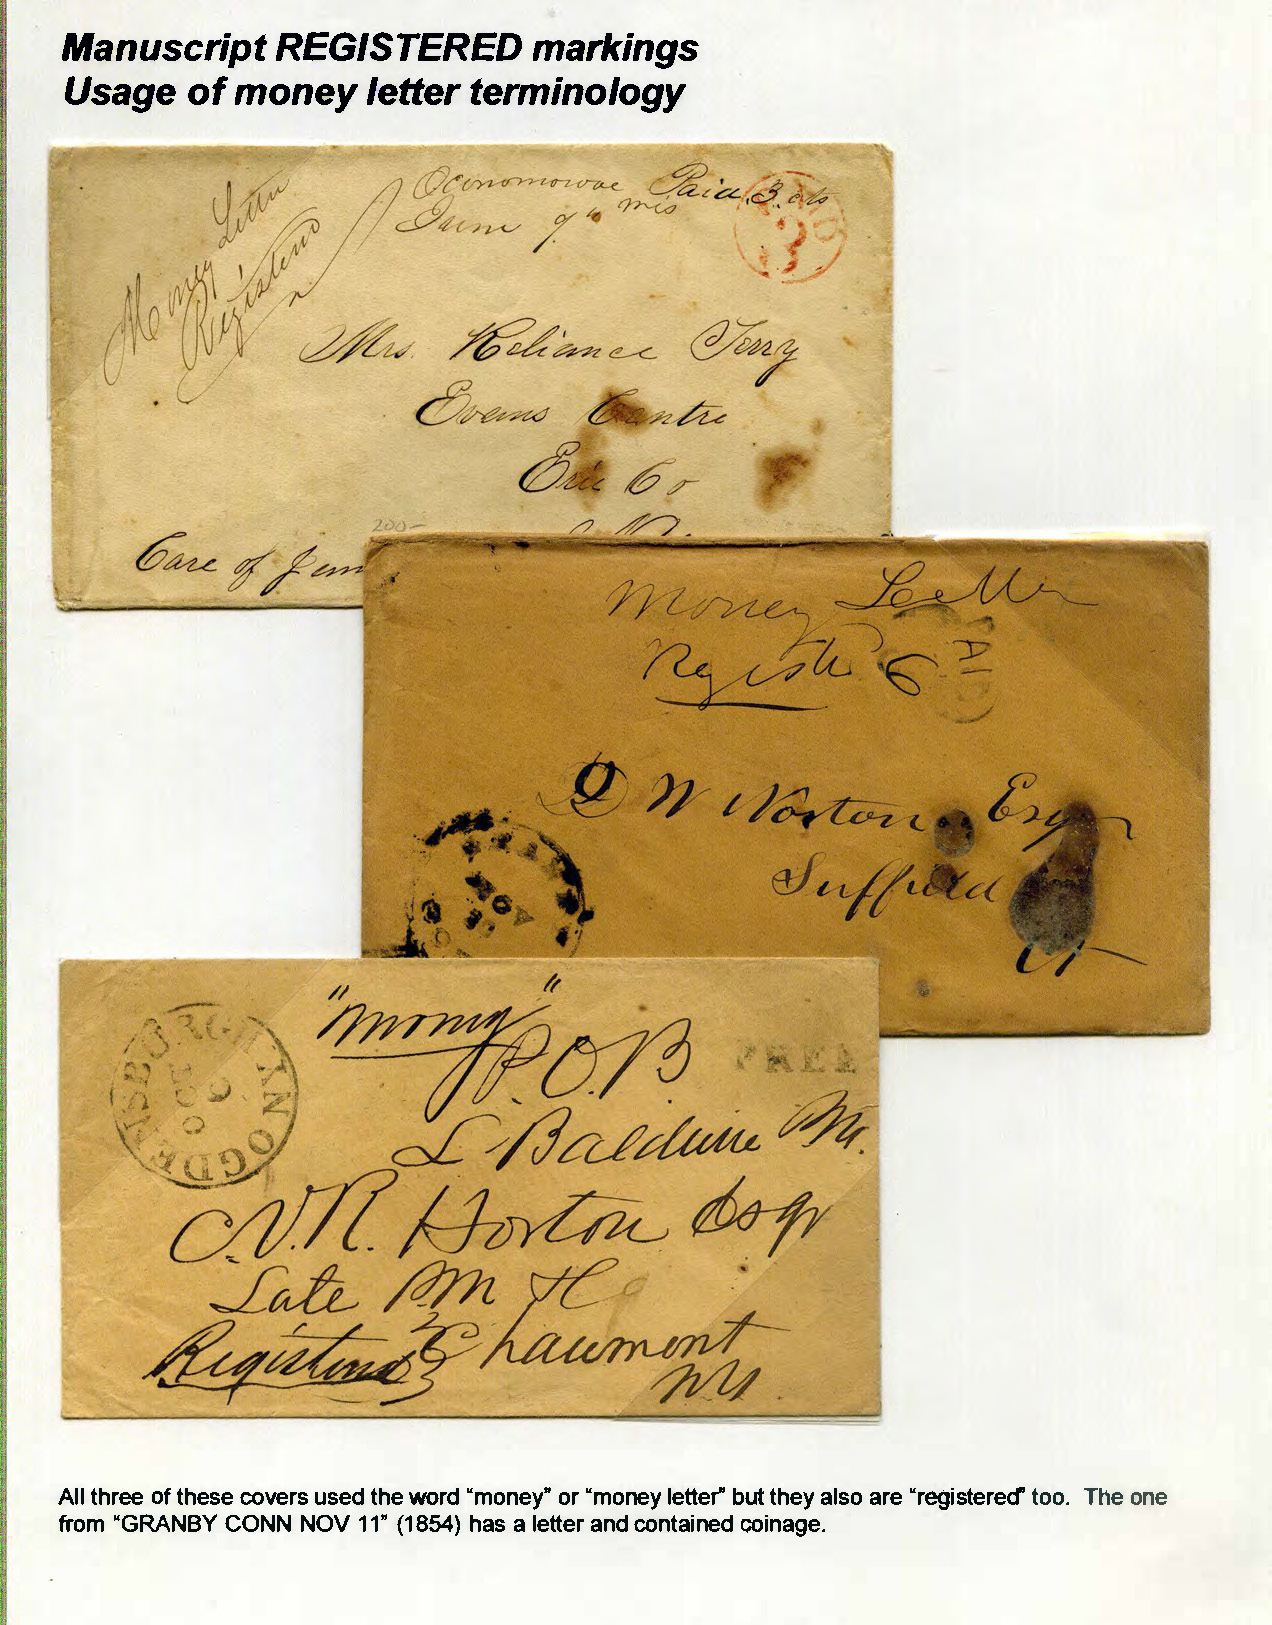 Manuscript REGISTERED markings
Usage of money letter terminology
Money Letter
Registered
Oconomowoc Wis
June 9"
Paid 3 cts
PAID
3
Mrs. Reliance Terry
Evans Centre
Erie Co
N
200-
Care of Jam
Money Letter
Register 6
PAID
D W Norton Esqr
Suffield
Ct
NOV
"Money"
P.O.B
FREE
OGDENSBURGH NY
OCT
9
L Baldwin PM.
C.V.R. Horton Esqr
Late P.M
Registered
Chaumont
NY.
All three of these covers used the word "money" or "money letter" but they also are "registered" too. The one
from "GRANBY CONN NOV 11" (1854) has a letter and contained coinage.